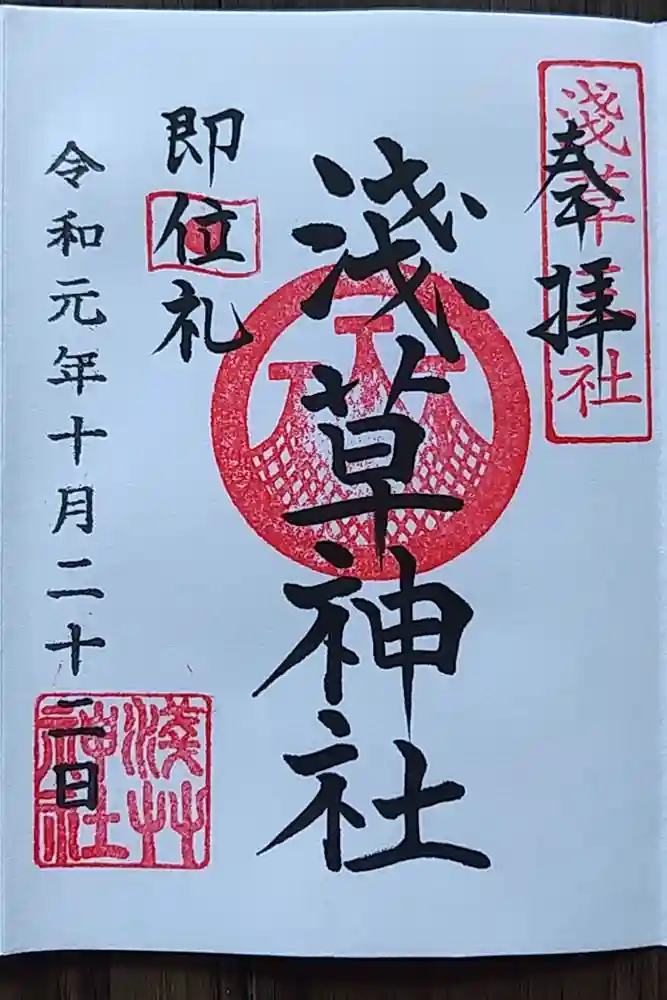 奉拝
淺草三社
淺草神社
即位礼
令和元年十月二十二日
淺草神社